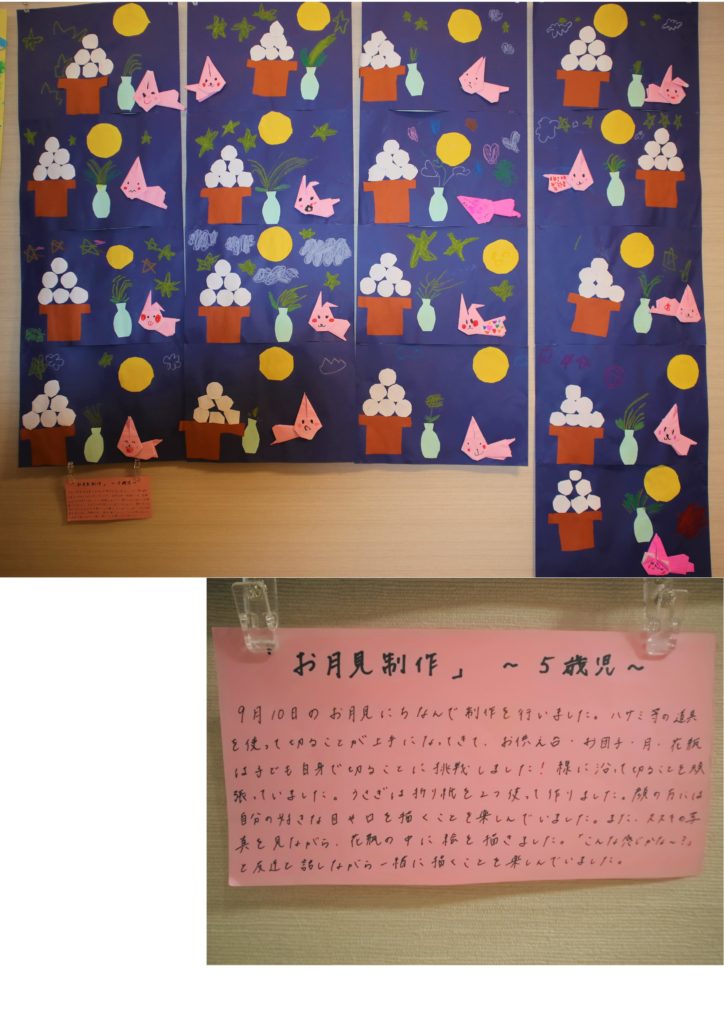 「お月見制作」 ～５歳児～
お月見制作」 ～５歳児～
９月１０日のお月見にちなんで制作を行いました。ハサミ等の道具
を使って切ることが上手になってきて、お供え台・お団子・月・花瓶
は子ども自身で切ることに挑戦しました！線に沿って切ることを頑
張っていました。うさぎは折り紙を２つ使って作りました。顔の方には
自分の好きな目や口を描くことを楽しんでいました。また、ススキの写
真を見ながら、花瓶の中に絵を描きました。「こんな感じかな～？」
と友達と話しながら一緒に描くことを楽しんでいました。